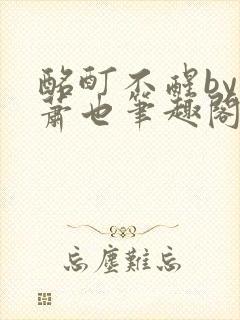 酩酊不醒by
萧也筆趣閣
忘塵難忘